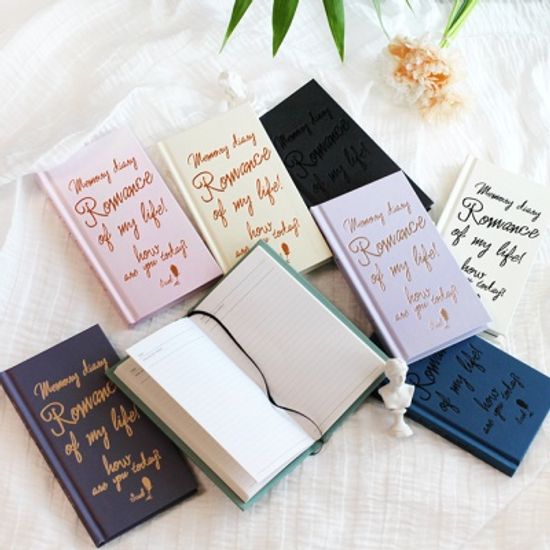 Memory diary
Romance
of my life!
how
are you today?
Memory diary
Romance
of my life!
how
are you today?
Memory diary
Romance
of my life!
Memory diary
Romance
of my life!
how
are you today?
Memory diary
Romance
of my life!
how
are you today?
Memory diary
Romance
of my life!
how
are you today?
Romance
of my life!
how
are you today?